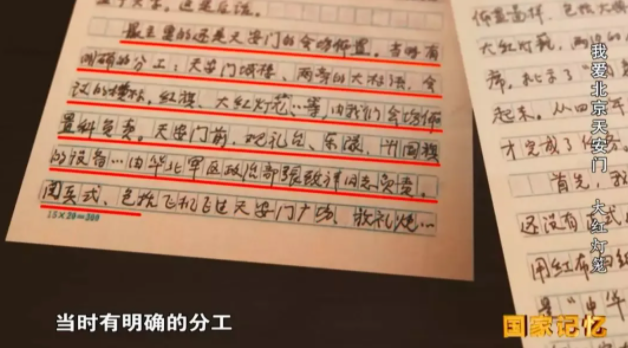 个大字。这是后话。
最主要的还是天安门的会场布置。当时有
明确的分工：天安门城楼、两旁的大标语、会
议的横标、红旗、大红灯笼…等，由我们会场布
置科负责。天安门前、观礼台、乐队、升国旗
的设备…由华北军区政治部张致祥同志负责。
阅兵式、包括飞机飞过天安门广场、放礼炮…
15×20=300
大红灯笼，两边的
席，扎了
起来。从四
才完成了任务。
首先，我
还没有正式
用红布
是“中华
我爱北京天安门 大红灯笼
当时有明确的分工
国家记忆